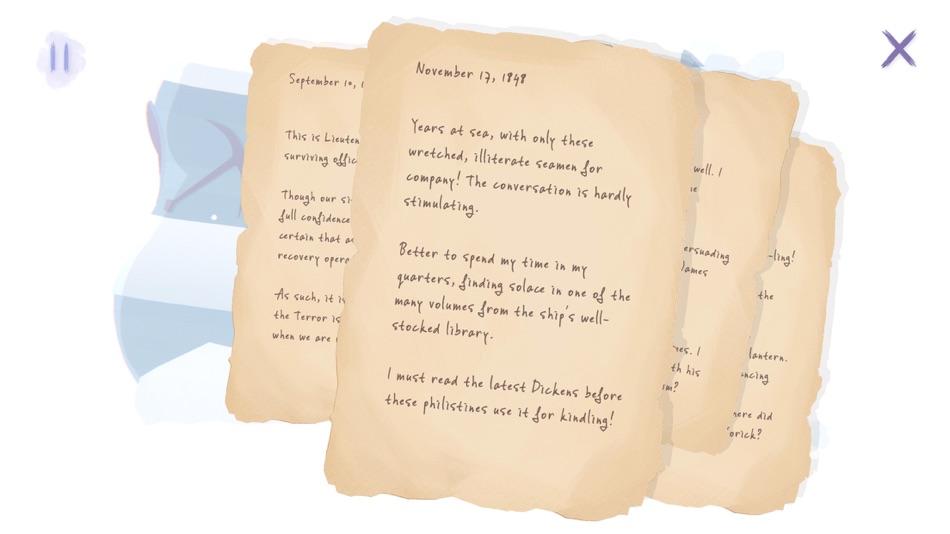 September 10, 1
This is Lieuten
surviving offic
Though our si
full confidence
certain that a
recovery opera
As such, it is
the Terror is
when we are
November 17, 1848
Years at sea, with only these
wretched, illiterate seamen for
company! The conversation is hardly
stimulating.
Better to spend my time in my
quarters, finding solace in one of the
many volumes from the ship's well-
stocked library.
I must read the latest Dickens before
these philistines use it for kindling!
well. I
ersuading
James
res. I
th his
sm?
-ling!
the
lantern.
ncing
here did
orick?